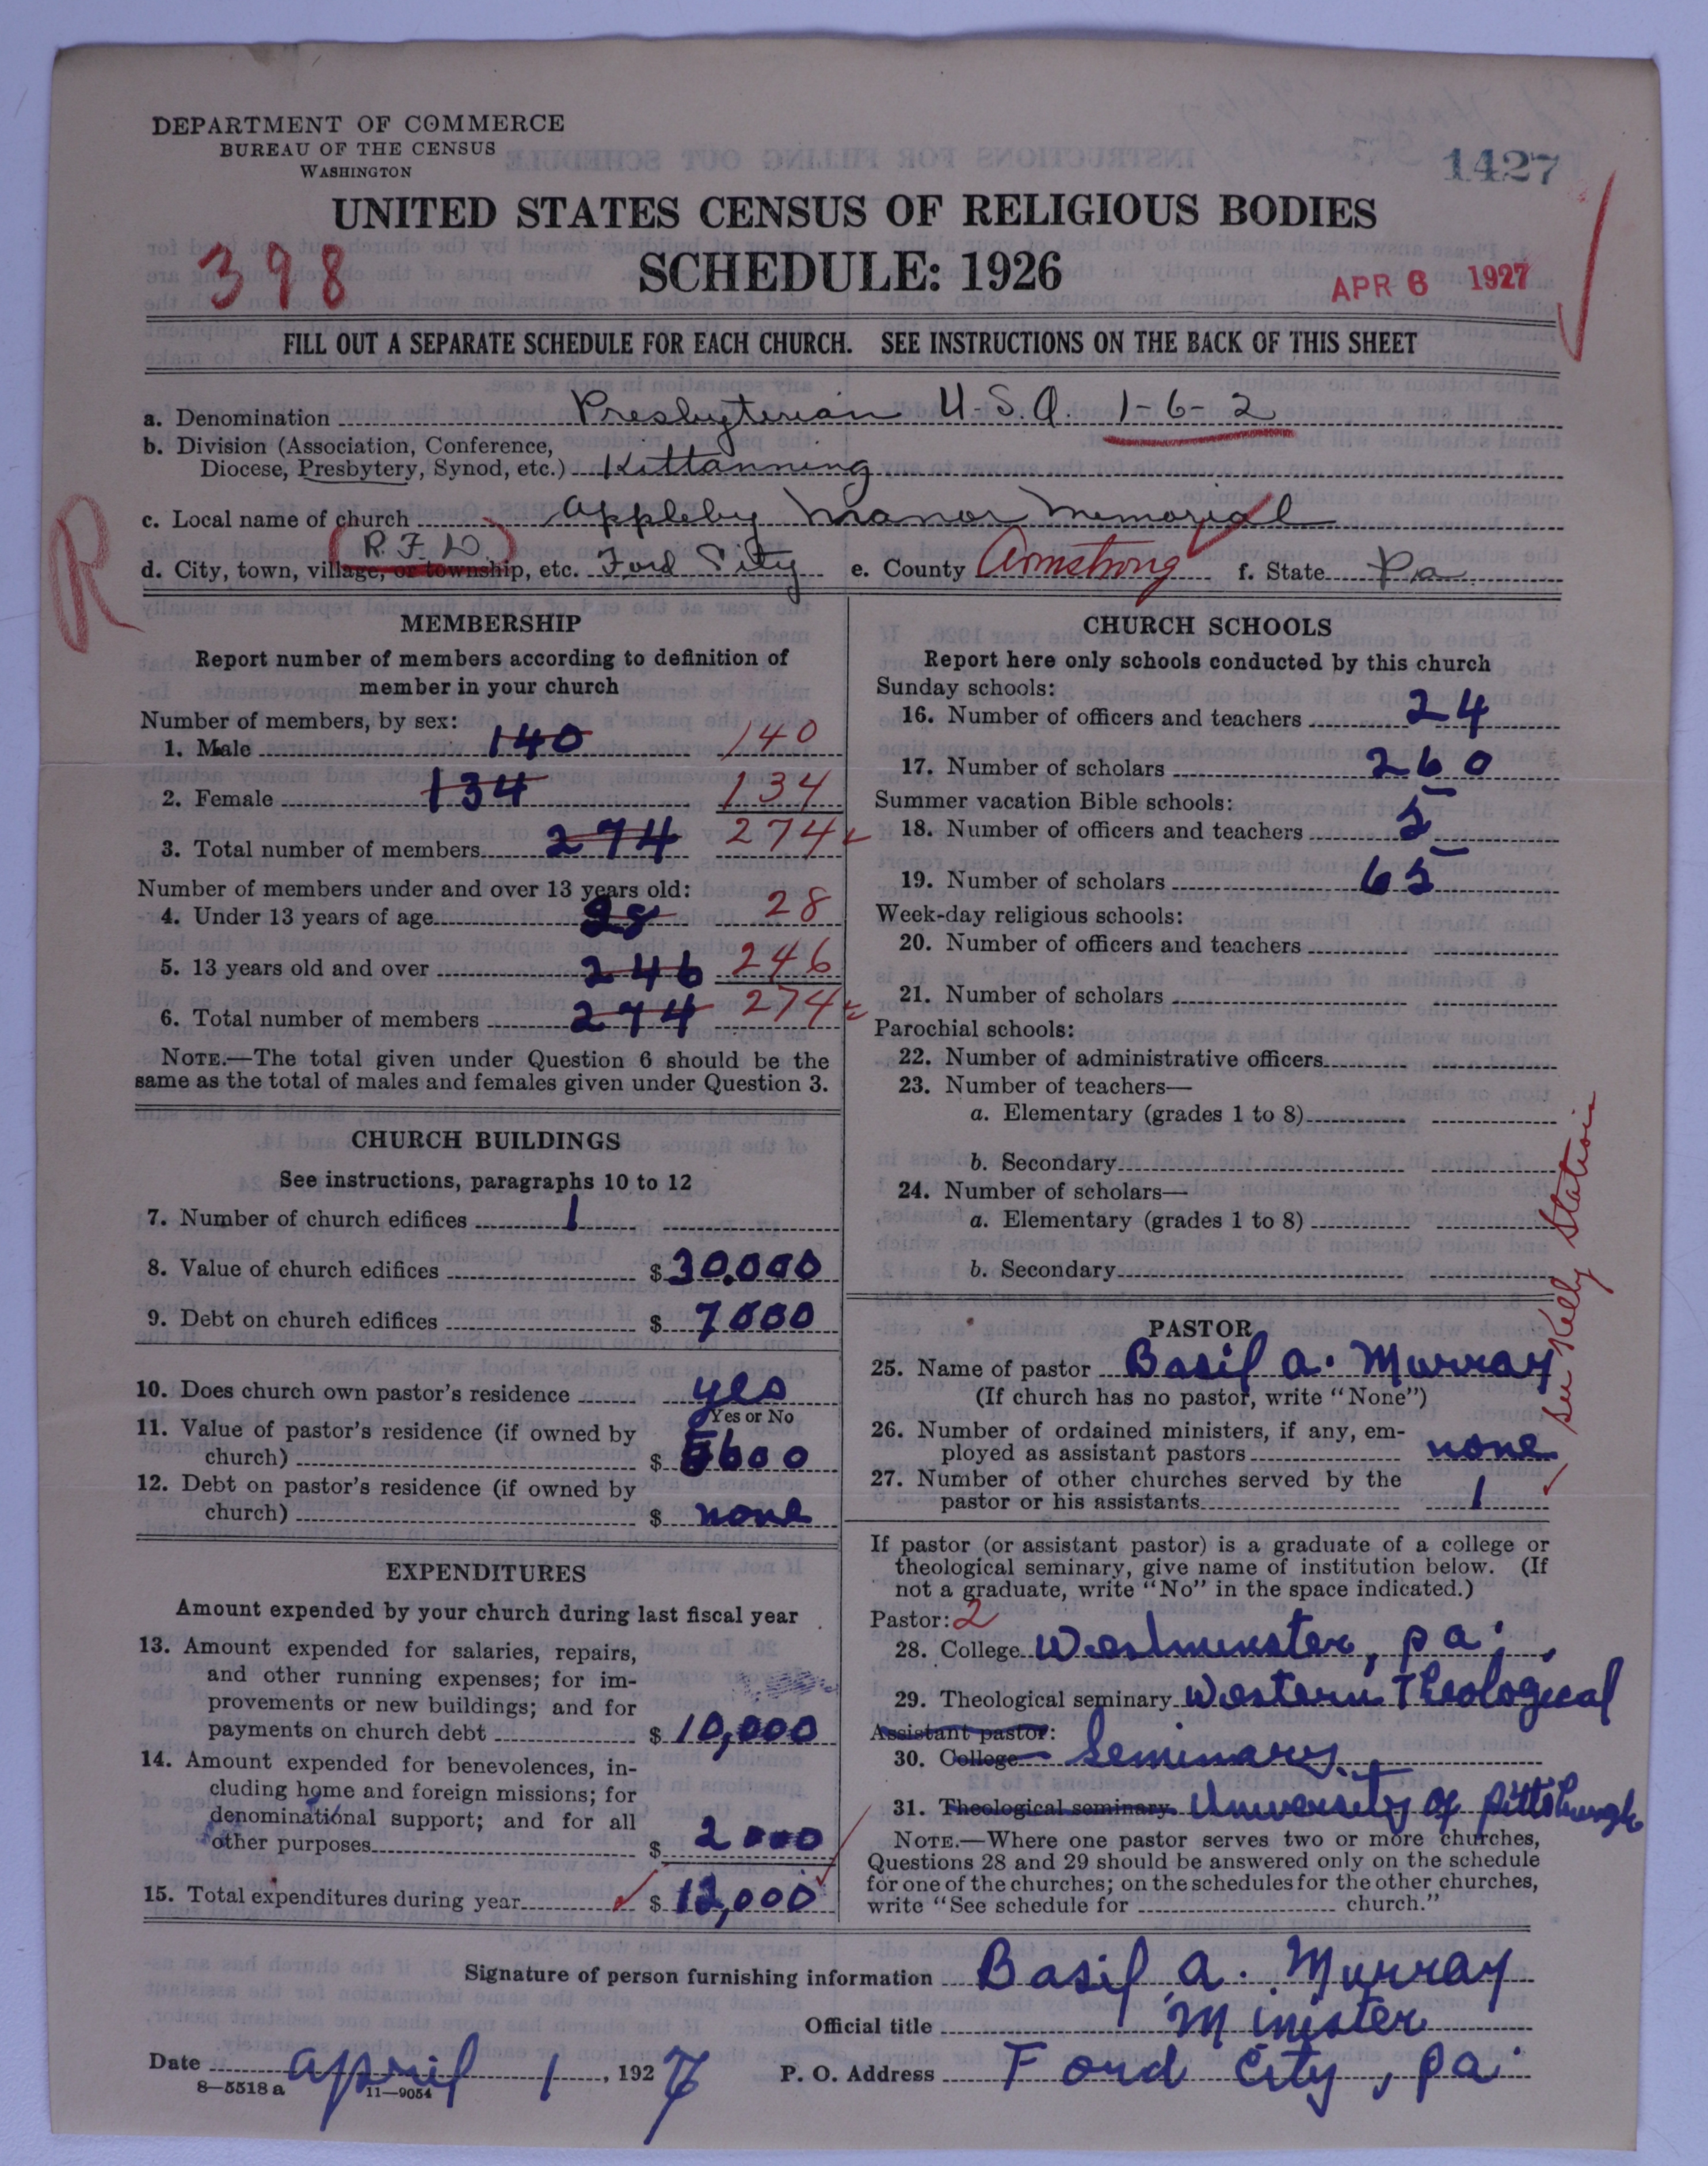 DEPARTMENT OF COMMERCE
BUREAU OF THE CENSUS
WASHINGTON
1427
UNITED STATES CENSUS OF RELIGIOUS BODIES
398
SCHEDULE: 1926
APR 6 1927
FILL OUT A SEPARATE SCHEDULE FOR EACH CHURCH. SEE INSTRUCTIONS ON THE BACK OF THIS SHEET
a. Denomination Presbyterian U.S.A. 1-6-2
b. Division (Association, Conference,
Diocese, Presbytery, Synod, etc.) Kittanning
R
c. Local name of church Appleby Manor Memorial
(R.F.D.)
d. City, town, village, or township, etc. Ford City e. County Armstrong f. State Pa
MEMBERSHIP
Report number of members according to definition of
member in your church
Number of members, by sex:
1. Male 140 140
2. Female 134 134
3. Total number of members 274 274
Number of members under and over 13 years old:
4. Under 13 years of age 28 28
5. 13 years old and over 246 246
6. Total number of members 274 274
NOTE.—The total given under Question 6 should be the
same as the total of males and females given under Question 3.
CHURCH BUILDINGS
See instructions, paragraphs 10 to 12
7. Number of church edifices 1
8. Value of church edifices $30,000
9. Debt on church edifices $ 7000
10. Does church own pastor's residence yes
Yes or No
11. Value of pastor's residence (if owned by
church) $ 5600
12. Debt on pastor's residence (if owned by
church) $ none
EXPENDITURES
Amount expended by your church during last fiscal year
13. Amount expended for salaries, repairs,
and other running expenses; for im-
provements or new buildings; and for
payments on church debt $ 10,000
14. Amount expended for benevolences, in-
cluding home and foreign missions; for
denominational support; and for all
other purposes $ 2000
15. Total expenditures during year $ 12,000
CHURCH SCHOOLS
Report here only schools conducted by this church
Sunday schools:
16. Number of officers and teachers 24
17. Number of scholars 260
Summer vacation Bible schools:
18. Number of officers and teachers 5
19. Number of scholars 65
Week-day religious schools:
20. Number of officers and teachers
21. Number of scholars
Parochial schools:
22. Number of administrative officers
23. Number of teachers—
a. Elementary (grades 1 to 8)
b. Secondary
24. Number of scholars—
a. Elementary (grades 1 to 8)
b. Secondary
See Kelly Station
PASTOR
25. Name of pastor Basil A. Murray
(If church has no pastor, write "None")
26. Number of ordained ministers, if any, em-
ployed as assistant pastors none
27. Number of other churches served by the
pastor or his assistants 1
If pastor (or assistant pastor) is a graduate of a college or
theological seminary, give name of institution below. (If
not a graduate, write "No" in the space indicated.)
Pastor: 2
28. College Westminster, Pa.
29. Theological seminary Western Theological
Assistant pastor:
30. College Seminary.
31. Theological seminary University of Pittsburgh
NOTE.—Where one pastor serves two or more churches,
Questions 28 and 29 should be answered only on the schedule
for one of the churches; on the schedules for the other churches,
write "See schedule for church."
Signature of person furnishing information Basil A. Murray
Official title Minister
Date April 1, 1927 P. O. Address Ford City, Pa.
8—5518 a 11—9054